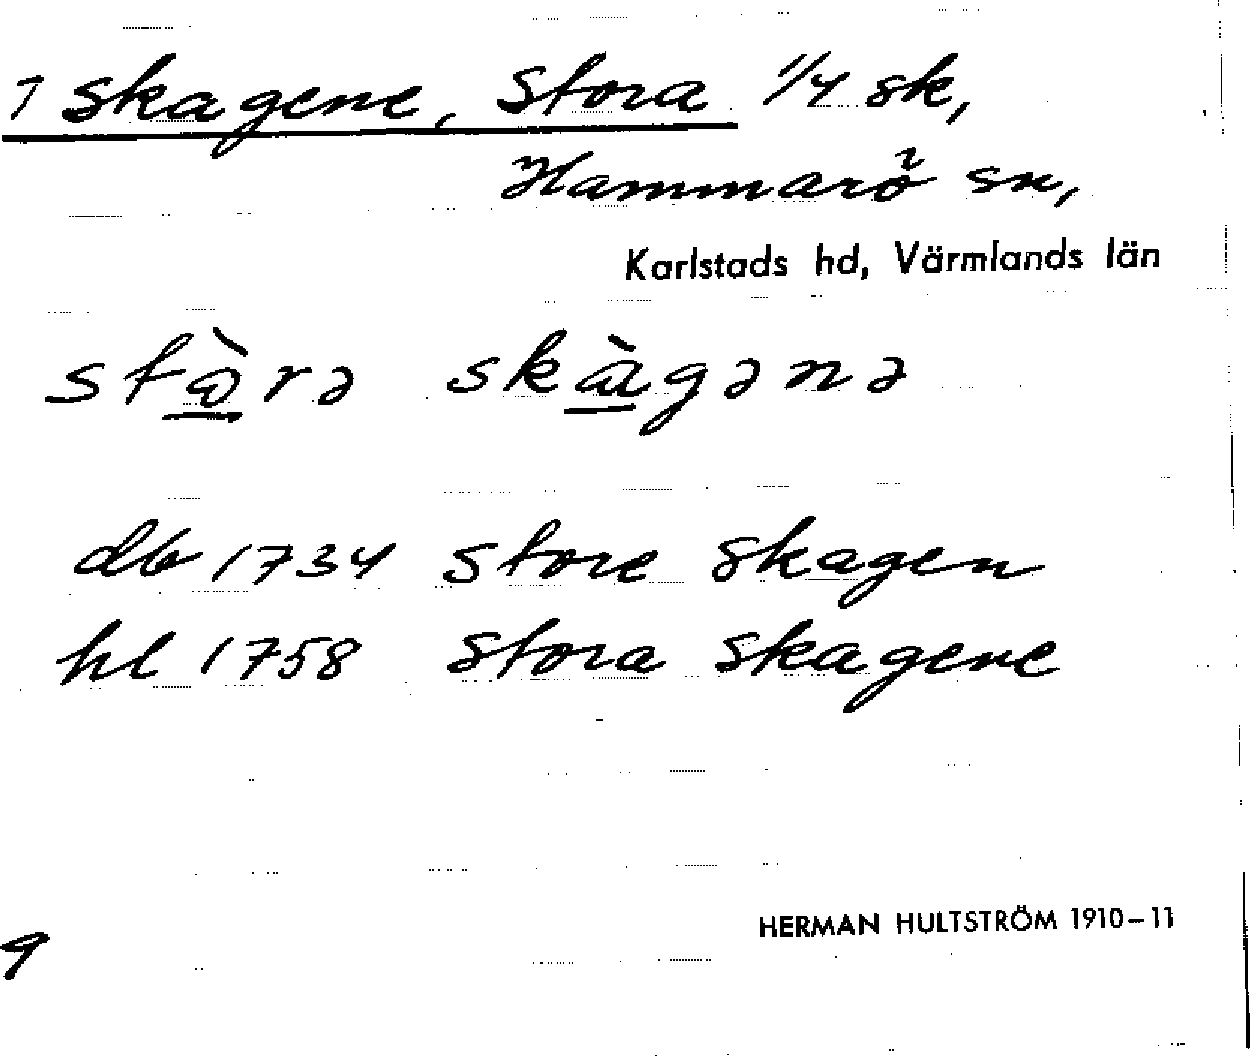 1 Skagene, Stora 1/4 sk,
Hammarö sn,
Karlstads hd, Värmlands län
stὼrə skàgənə
db 1734 Store Skagen
hl 1758 Stora Skagene
HERMAN HULTSTRÖM 1910–11
9